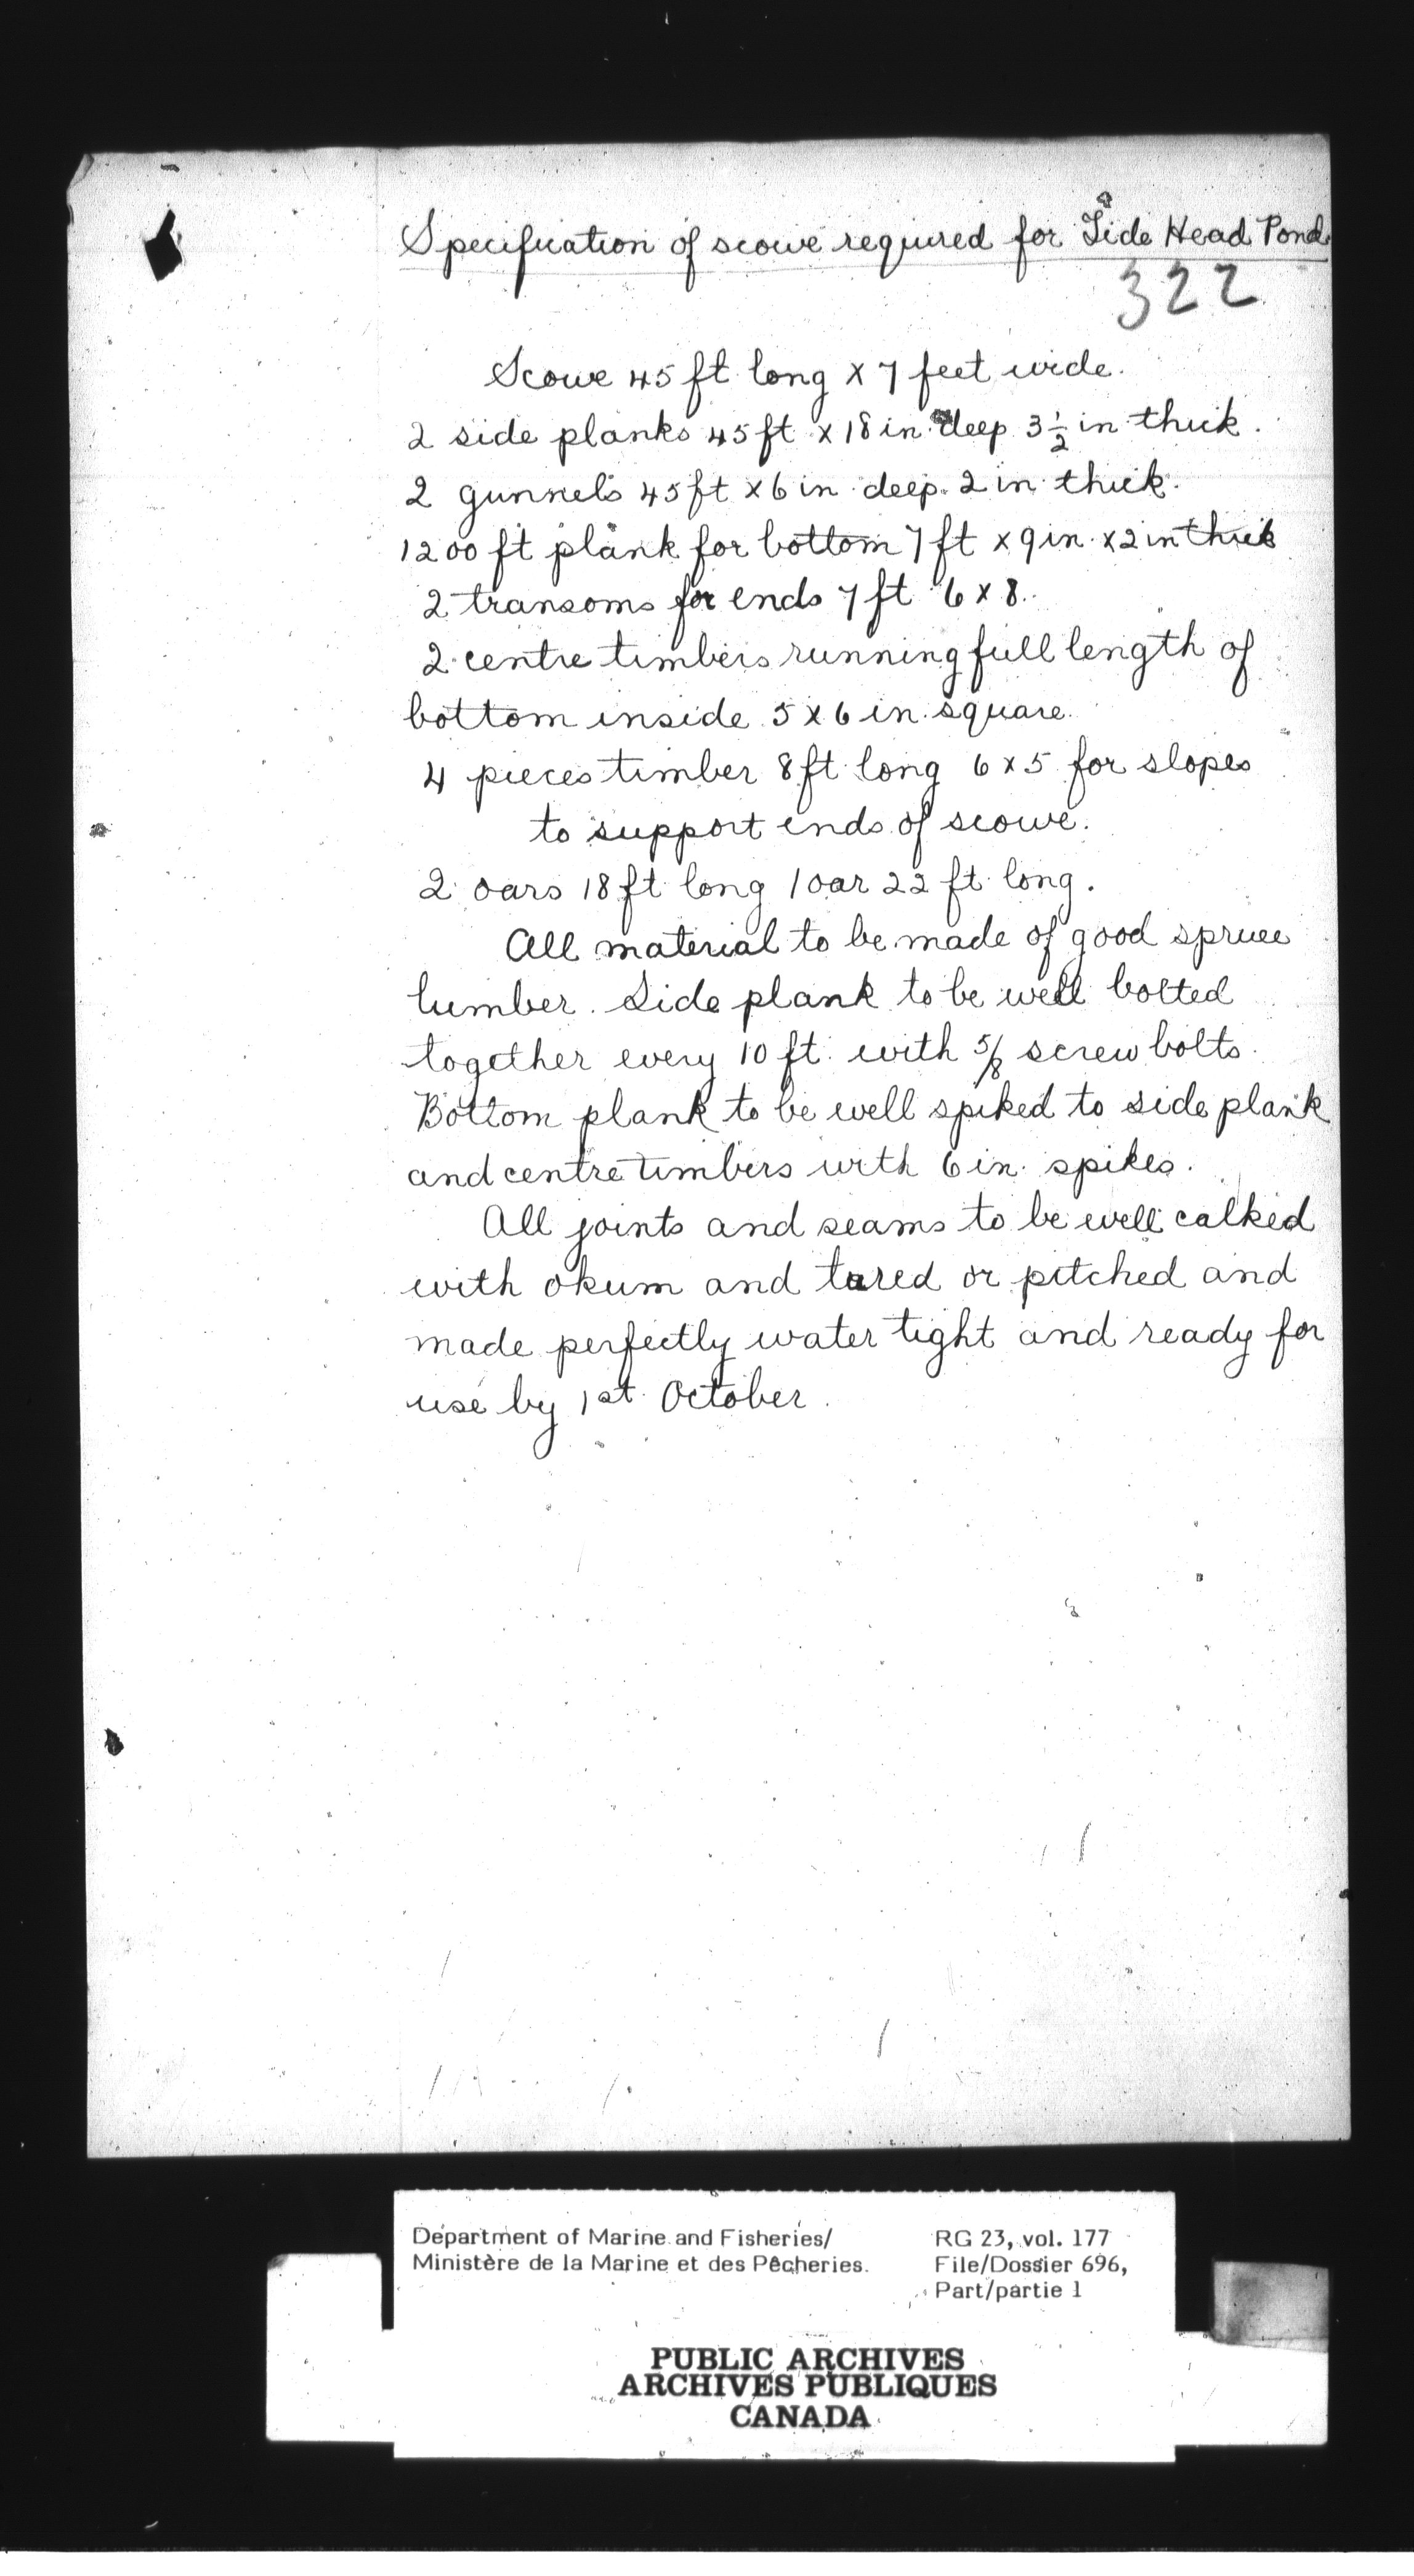 Specification of scowe required for Tide Head Pond
322
Scowe 45 ft long x 7 feet wide.
2 side planks 45 ft x 18 in deep 3 1/2 in thick.
2 gunnels 45 ft x 6 in deep. 2 in thick.
1200 ft plank for bottom 7 ft x 9 in x 2 in thick
2 transoms for ends 7 ft 6 x 8.
2 centre timbers running full length of
bottom inside 5 x 6 in square.
4 pieces timber 8 ft long 6 x 5 for slopes
to support ends of scowe.
2 oars 18 ft long 1 oar 22 ft long.
All material to be made of good spruce
lumber. Side plank to be well bolted
together every 10 ft. with 5/8 screw bolts.
Bottom plank to be well spiked to side plank
and centre timbers with 6 in. spikes.
All joints and seams to be well calked
with okum and tared or pitched and
made perfectly water tight and ready for
use by 1st October.
Department of Marine and Fisheries/
Ministère de la Marine et des Pêcheries.
RG 23, vol. 177
File/Dossier 696,
Part/partie 1
PUBLIC ARCHIVES
ARCHIVES PUBLIQUES
CANADA